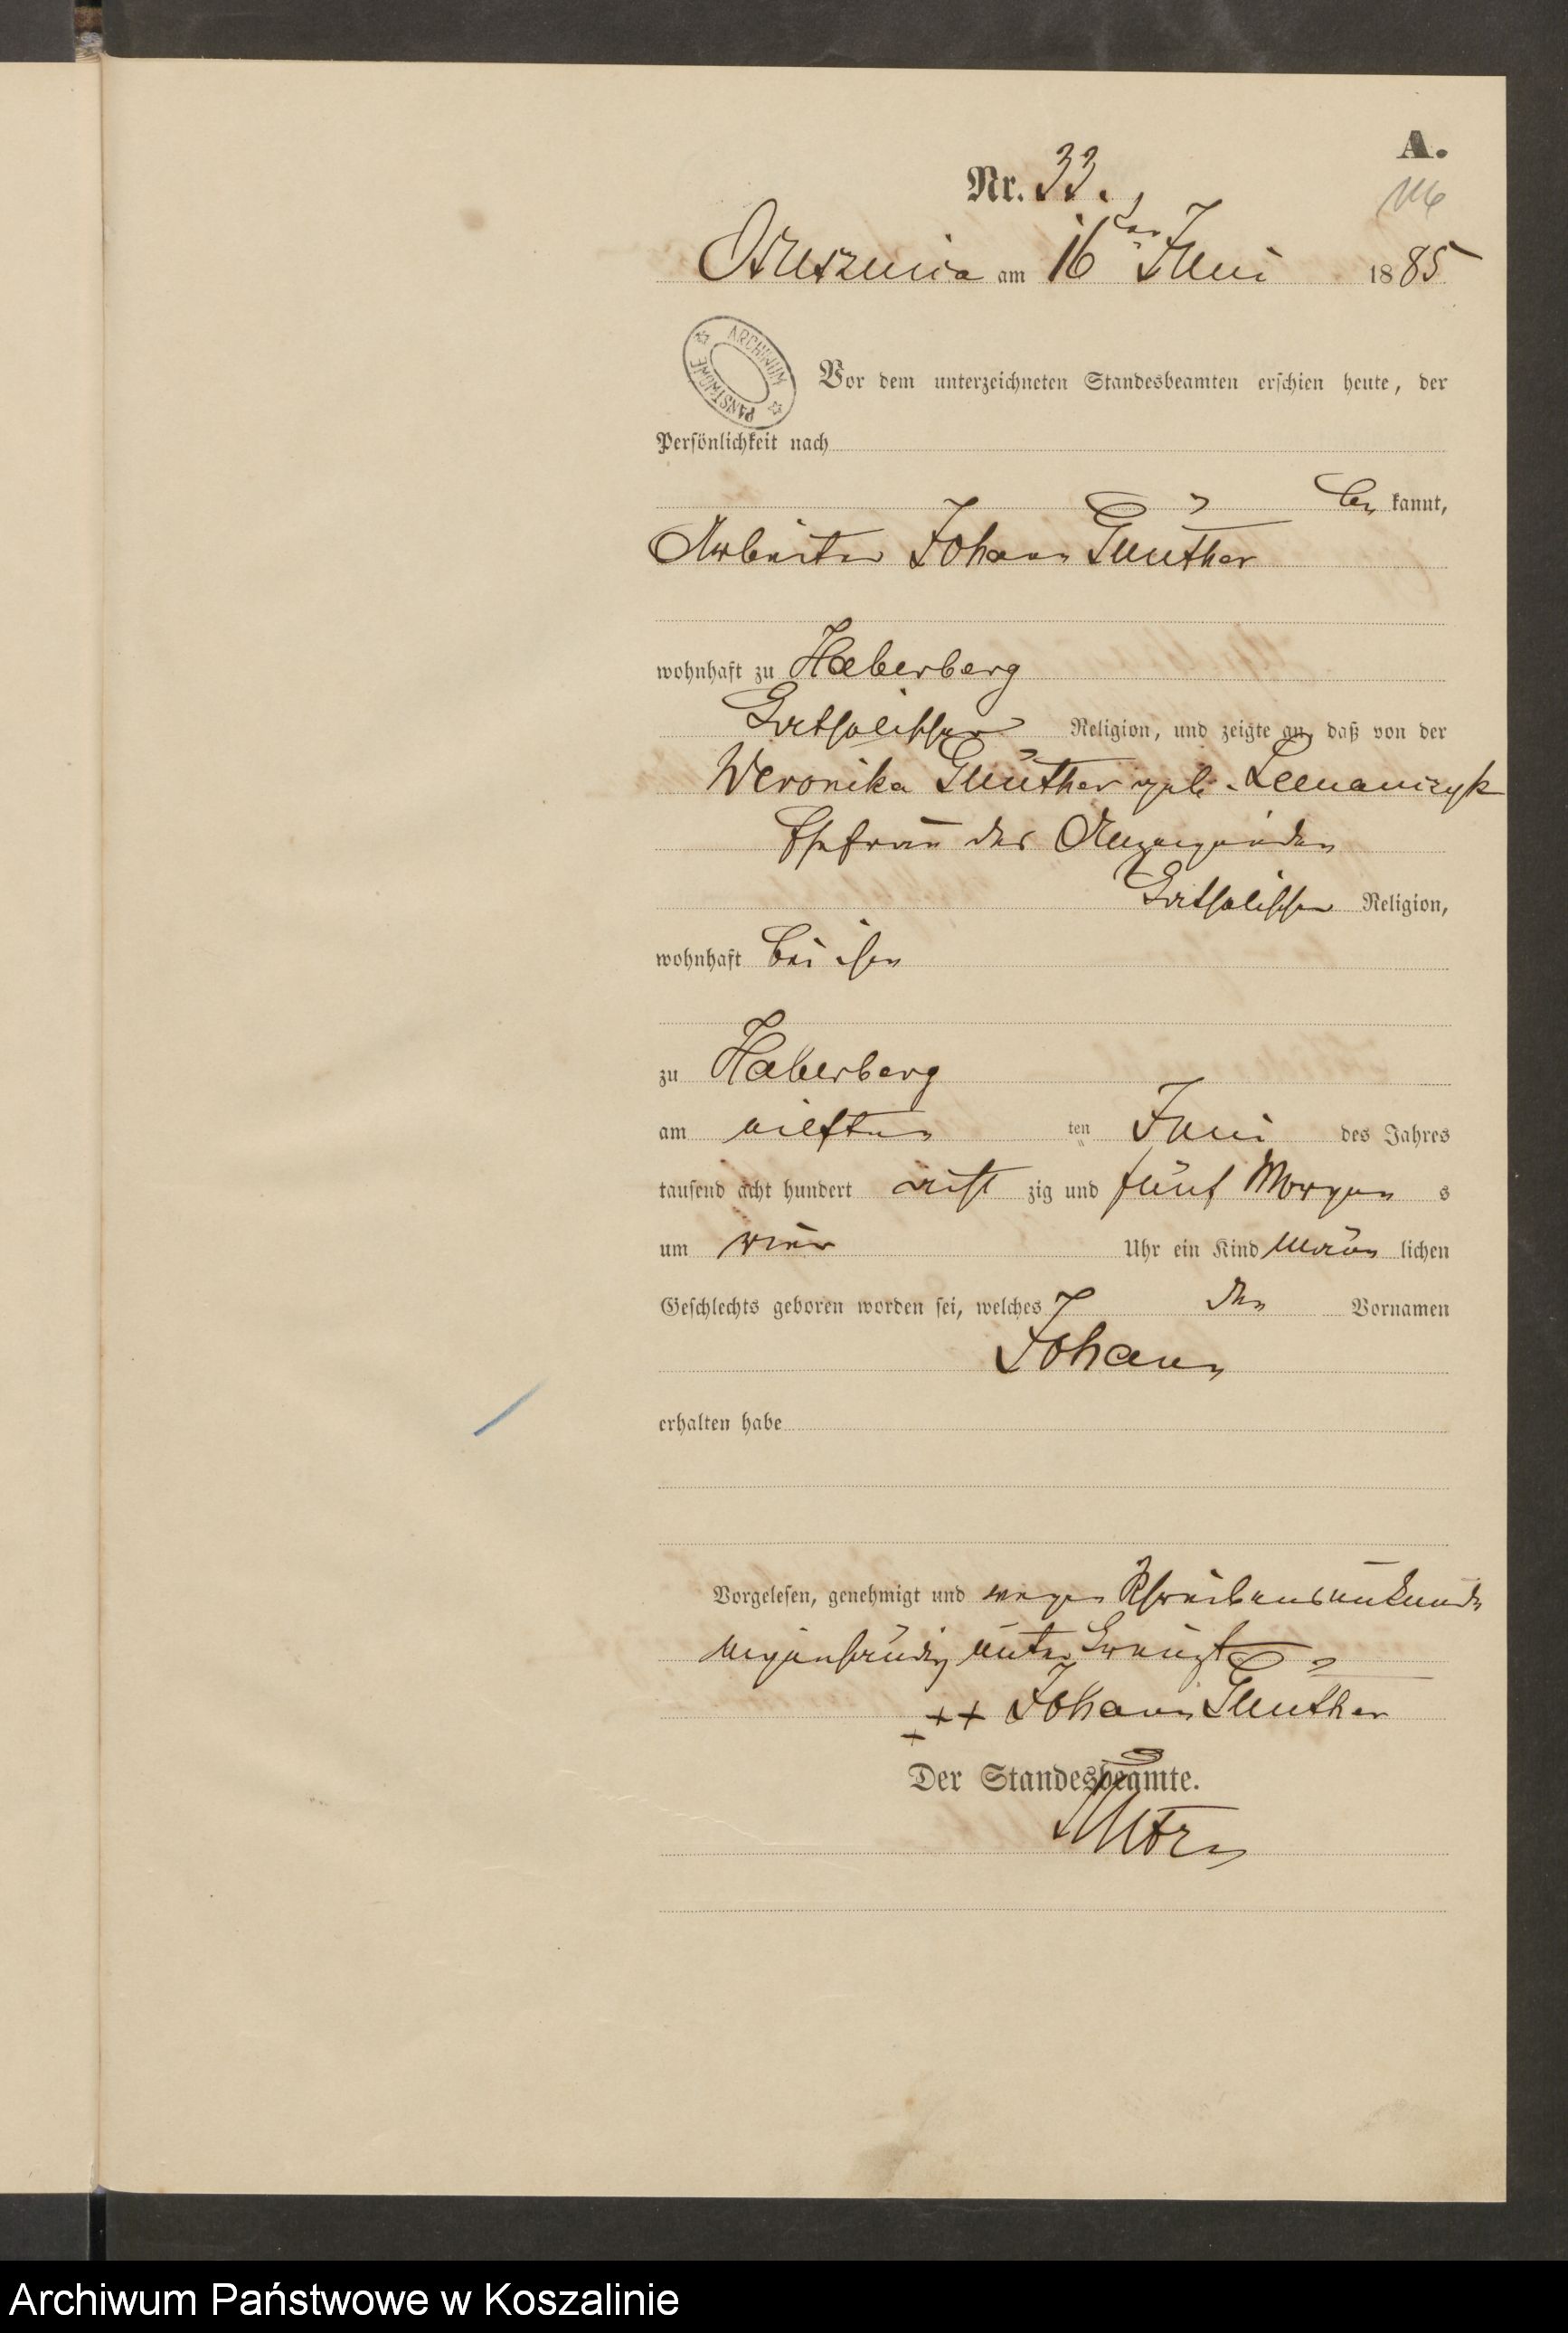 A.
Nr. 33.
116
Oszuszniça am 16ten Juni 1885
ARCHIWUM PAŃSTWOWE
Vor dem unterzeichneten Standesbeamten erschien heute, der
Persönlichkeit nach
be kannt,
Arbeiter Johann Günther
wohnhaft zu Haberberg
katholischer Religion, und zeigte an, daß von der
Weronika Günther geb. Lemanczyk
Ehefrau des Anzeigenden
katholischer Religion,
wohnhaft bei ihm
zu Haberberg
am eilften ten Juni des Jahres
tausend acht hundert acht zig und fünf Morgen s
um vier Uhr ein Kind männ lichen
Geschlechts geboren worden sei, welches den Vornamen
Johann
erhalten habe
Vorgelesen, genehmigt und wegen Schreibensunkunde
eigenhändig unterkreuzt
+++ Johann Günther
Der Standesbeamte.
Archiwum Państwowe w Koszalinie